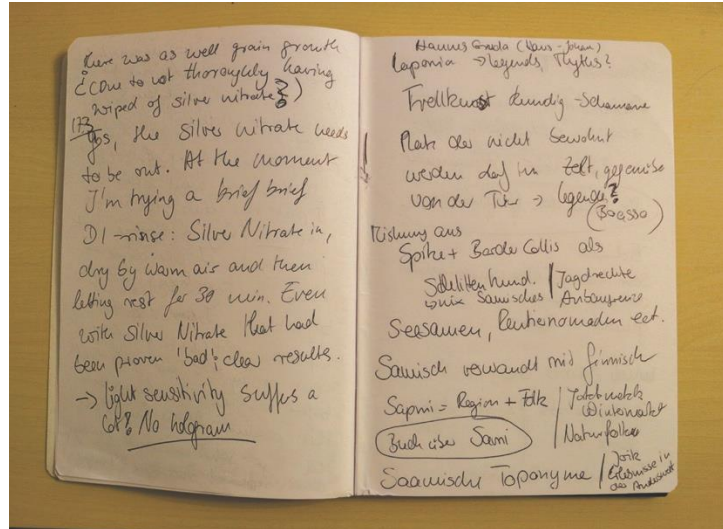 there was as well grain growth
¿ (Due to not thoroughly having
wiped of silver nitrate?)
173
Yes, the silver nitrate needs
to be out. At the moment
I'm trying a brief brief
DI-rinse: Silver Nitrate in,
dry by warm air and then
letting rest for 30 min. Even
with Silver Nitrate that had
been proven 'bad': clear results.
→ light sensitivity suffers a
lot! No hologram
Hannes (Hans-Johan)
Laponia → legends, Mythus?
kundig - Schamane
Platz der nicht bewohnt
werden darf im Zelt, gegenüber
von der Tür → legende?
(Boasso)
Mischung aus
Spitz + Border Collis als
Schlittenhund. | Jagdrechte
samisches
Seesamen, Rentiernomaden ect.
Samisch verwandt mid finnisch
Sapmi = Region + Folk | Jokkmokk
Wintermarkt
Buch über Sami | Naturfolk
Saamische Toponyme | Joik
Erlebnisse in
der Anderswelt